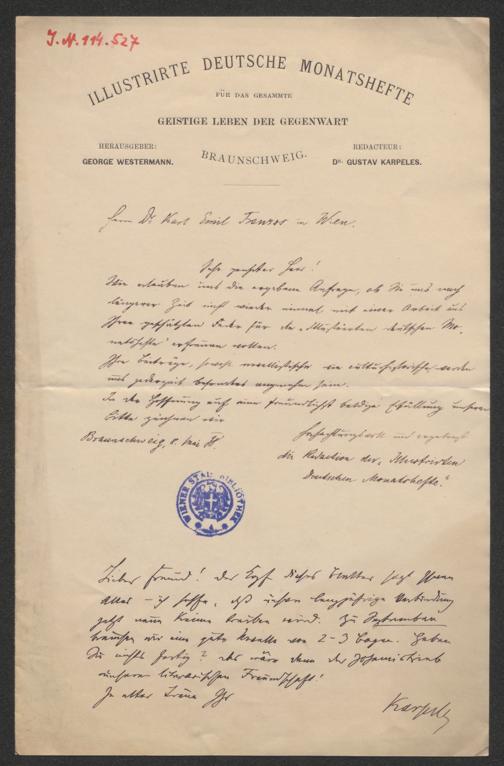 J.N. 114.527
ILLUSTRIRTE DEUTSCHE MONATSHEFTE
FÜR DAS GESAMMTE
GEISTIGE LEBEN DER GEGENWART
HERAUSGEBER:
GEORGE WESTERMANN.
BRAUNSCHWEIG.
REDACTEUR:
DR. GUSTAV KARPELES.
Herrn Dr Karl Emil Franzos in Wien.
Sehr geehrter Herr!
Wir erlauben uns die ergebene Anfrage, ob Sie uns nach
längerer Zeit auch wieder einmal mit einer Arbeit aus
Ihrer geschätzten Feder für die „Illustrirten deutschen Mo-
natshefte" erfreuen wollen.
Ihre Beiträge, sowohl novellistische wie culturhistorische werden
uns jederzeit besonders angenehm sein.
In der Hoffnung auf eine freundlichst baldige Erfüllung unserer
Bitte zeichnen wir
Braunschweig,
Hochachtungsvoll und ergebenst
die Redaction der „Illustrirten
Deutschen Monatshefte."
WIENER STADTBIBLIOTHEK
Lieber Freund! Der Kopf dieses Blattes sagt Ihnen
Alles – ich hoffe, daß unsere langjährige Verbindung
jetzt neue Keime treiben wird. Zu September
brauchen wir eine gute Novelle von 2–3 Bogen. Haben
Sie nichts fertig? Das wäre denn der
unserer literarischen Freundschaft!
In alter Treue Ihr
Karpeles